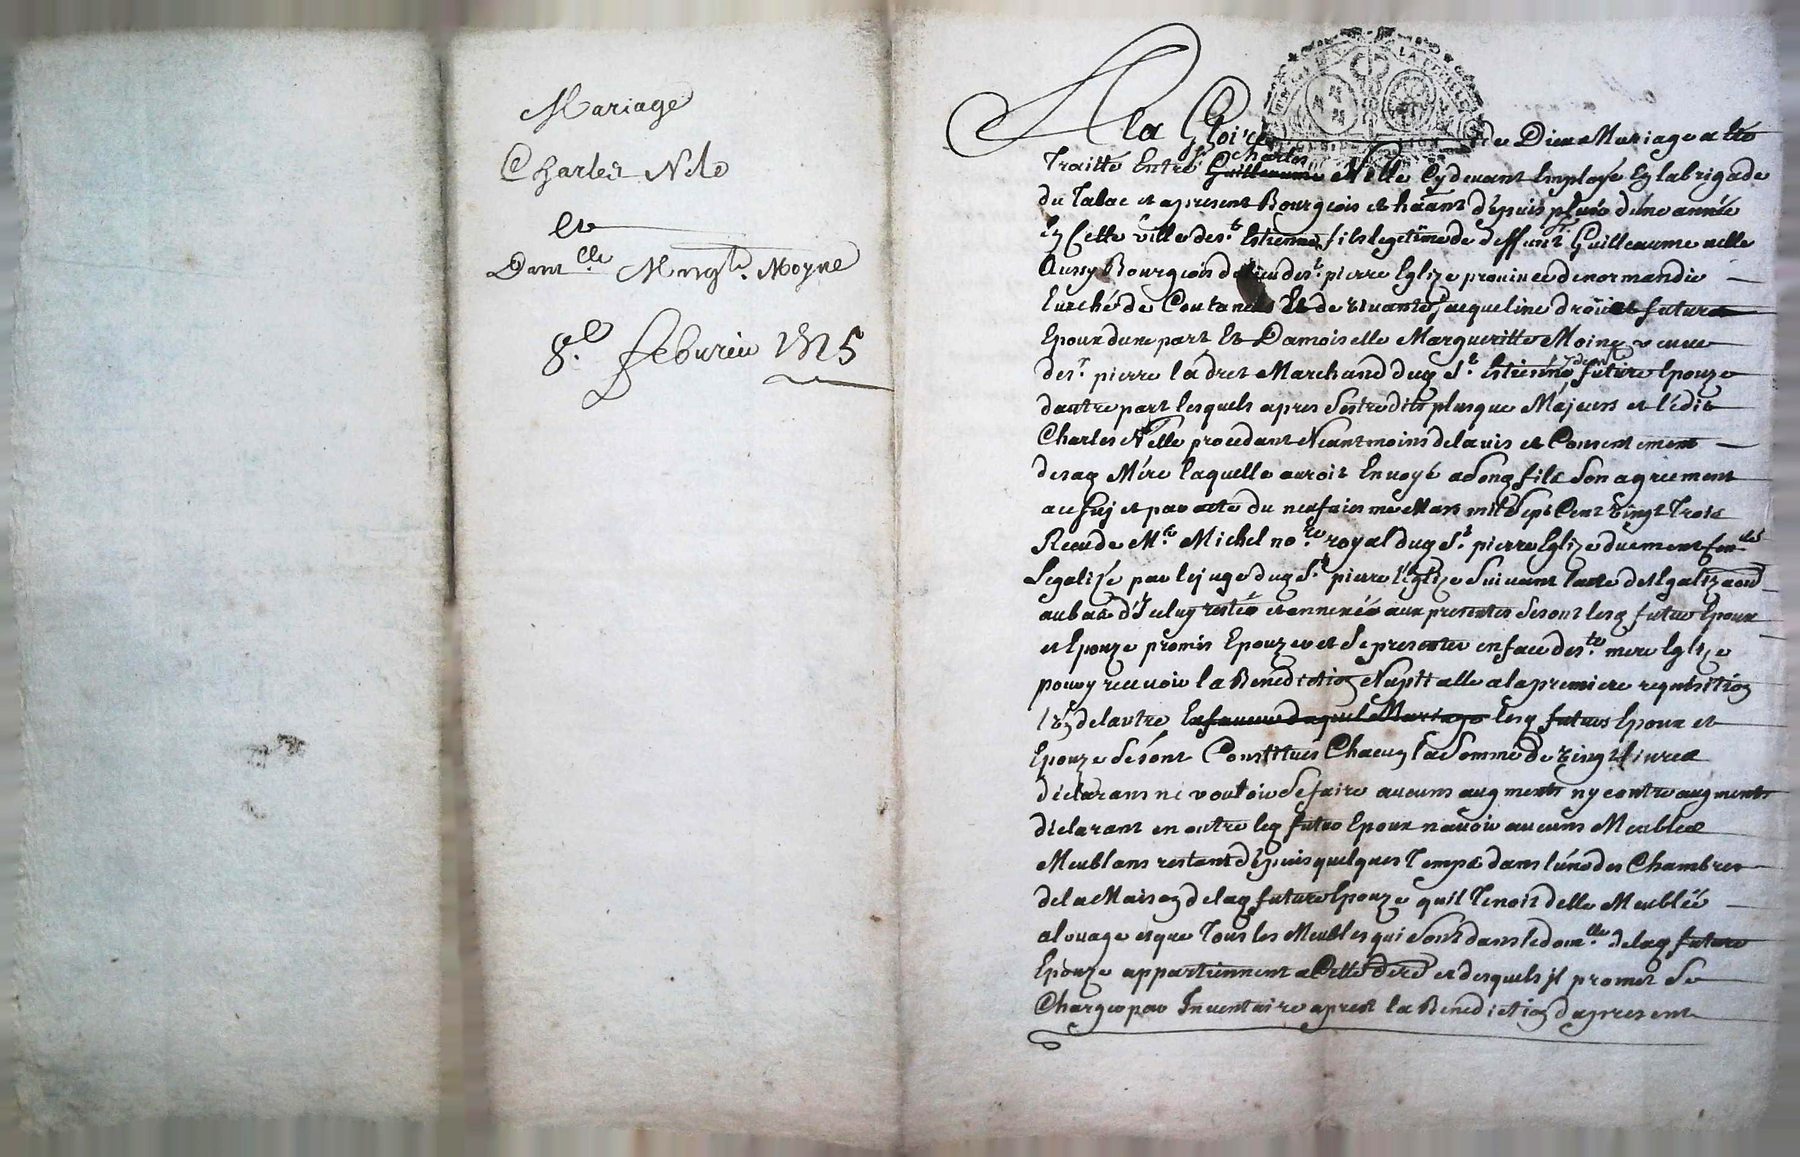 Mariage
Charles Nele
Et
Dam.lle Margte. Moyne
8.e feburier 1725
A la Gloire de Dieu Mariage a été
Traitté Entre sr. Charles Guilleaume Nelle Cy devant Employé En la brigade
du Tabac et apresent Bourgeois et habant depuis plus d'une année
En Cette ville de st. Estienne fils legetime de deffunt sr. Guilleaume nelle
Aussy Bourgeois de st. pierre Eglize province de normandie
Euesché de Coutances Et de vivante Jacqueline droüet futur
Epoux d'une part Et Damoiselle Margueritte Moine veuve
de sr. pierre ladret Marchand dud St. Estienne future Epouze
dautre part lesquels apres s'estre dits plusque Majeurs et ledit
Charles Nelle procedant Neantmoins de lavis et Consentement
de sad Mére laquelle auroit Envoyé a Son fils Son agréement
au sujet par acte du neufuiesme Mars mil Sept Cent vingt Trois
Receu de Me. Michel nore. royal dud St. pierre Eglize duement
Legalizé par le juge dud St. pierre l'Eglize Suivant l'acte de légalizaon
au bas d'Iceluy restée et annexée aux presentes se sont lesd futur Epoux
et Epouze promis Epouzer et Se presenter en face de ste. mere Eglize
pour y recevoir la Benediction Nuptialle a la premiere requisition
l'un de lautre En faveur duquel Mariage lesd futurs Epoux et
Epouze se sont Constitués Chacun la Somme de vingt livres
déclarans ne vouloir Se faire aucuns augments ny contre augments
déclarant en outre led futur Epoux navoir aucuns Meubles
Meublans restant dépuis quelques Temps dans l'une des Chambres
de la Maison de lad future Epouze qu'il Tenoit d'elle Meublée
a louage et que Tous les Meubles qui sont dans le domlle de lad future
Epouze appartiennent a Cette dere et desquels il promet Se
Charger par Inventaire aprest la Benediction du present